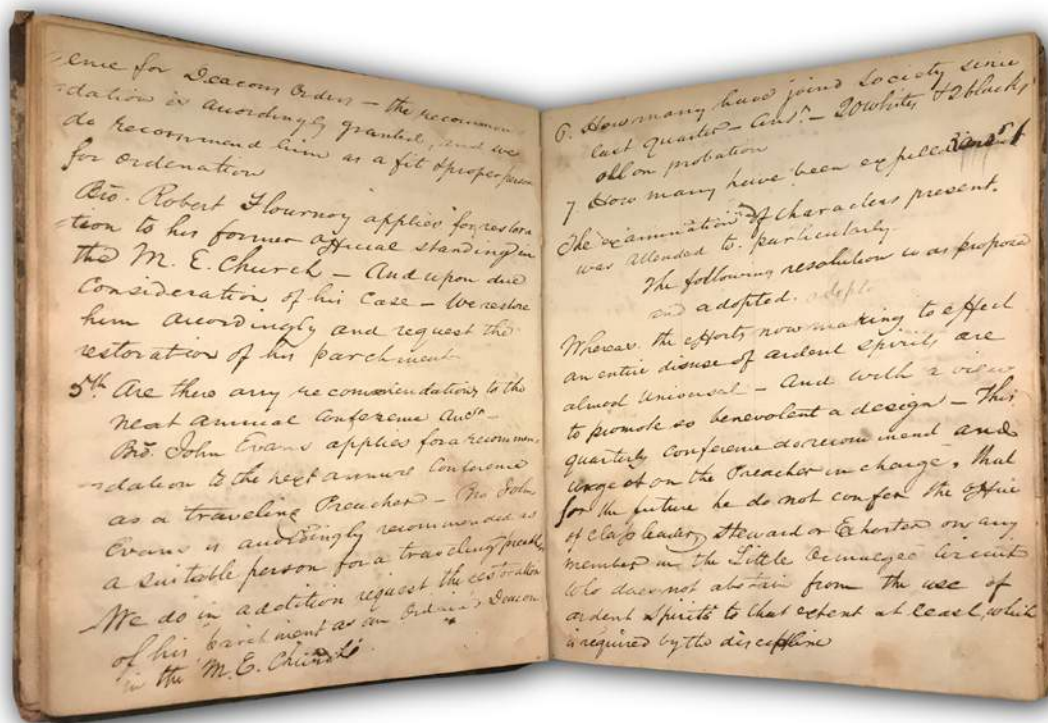 -ence for Deacons Orders – the recommen-
-dation is accordingly granted, and we
do recommend him as a fit & proper person
for ordenation
Bro. Robert Flournoy applies for restora
-tion to his former official standing in
the M. E. Church – And upon due
Consideration of his Case – We restore
him accordingly and request the
restoration of his parchment
5th Are there any recommendations to the
next annual Conference Ansr –
Bro. John Evans applies for a recommen-
-dation to the next annual Conference
as a traveling Preacher – Bro John
Evans is accordingly recommended as
a suitable person for a traveling preacher
We do in addition request the restoration
of his parchment as an Ordain'd Deacon
in the M.E. Church
6. How many have joined Society since
last quarter – Ansr. – 20 whites & 2 blacks
all on probation
7. How many have been expelled Ansr 1
The examination of characters present.
was attended to particularly.
The following resolution was propose
and adopted.
Whereas the efforts now making to effect
an entire disuse of ardent spirits are
almost universal – And with a view
to promote so benevolent a design – This
quarterly Conference do recommend and
urge it on the Preacher in charge, that
for the future he do not confer the office
of class leader, Steward or Exhorter on any
member in the Little Ocmulgee Circuit
who does not abstain from the use of
ardent Spirits to that extent at least, which
is required by the discipline